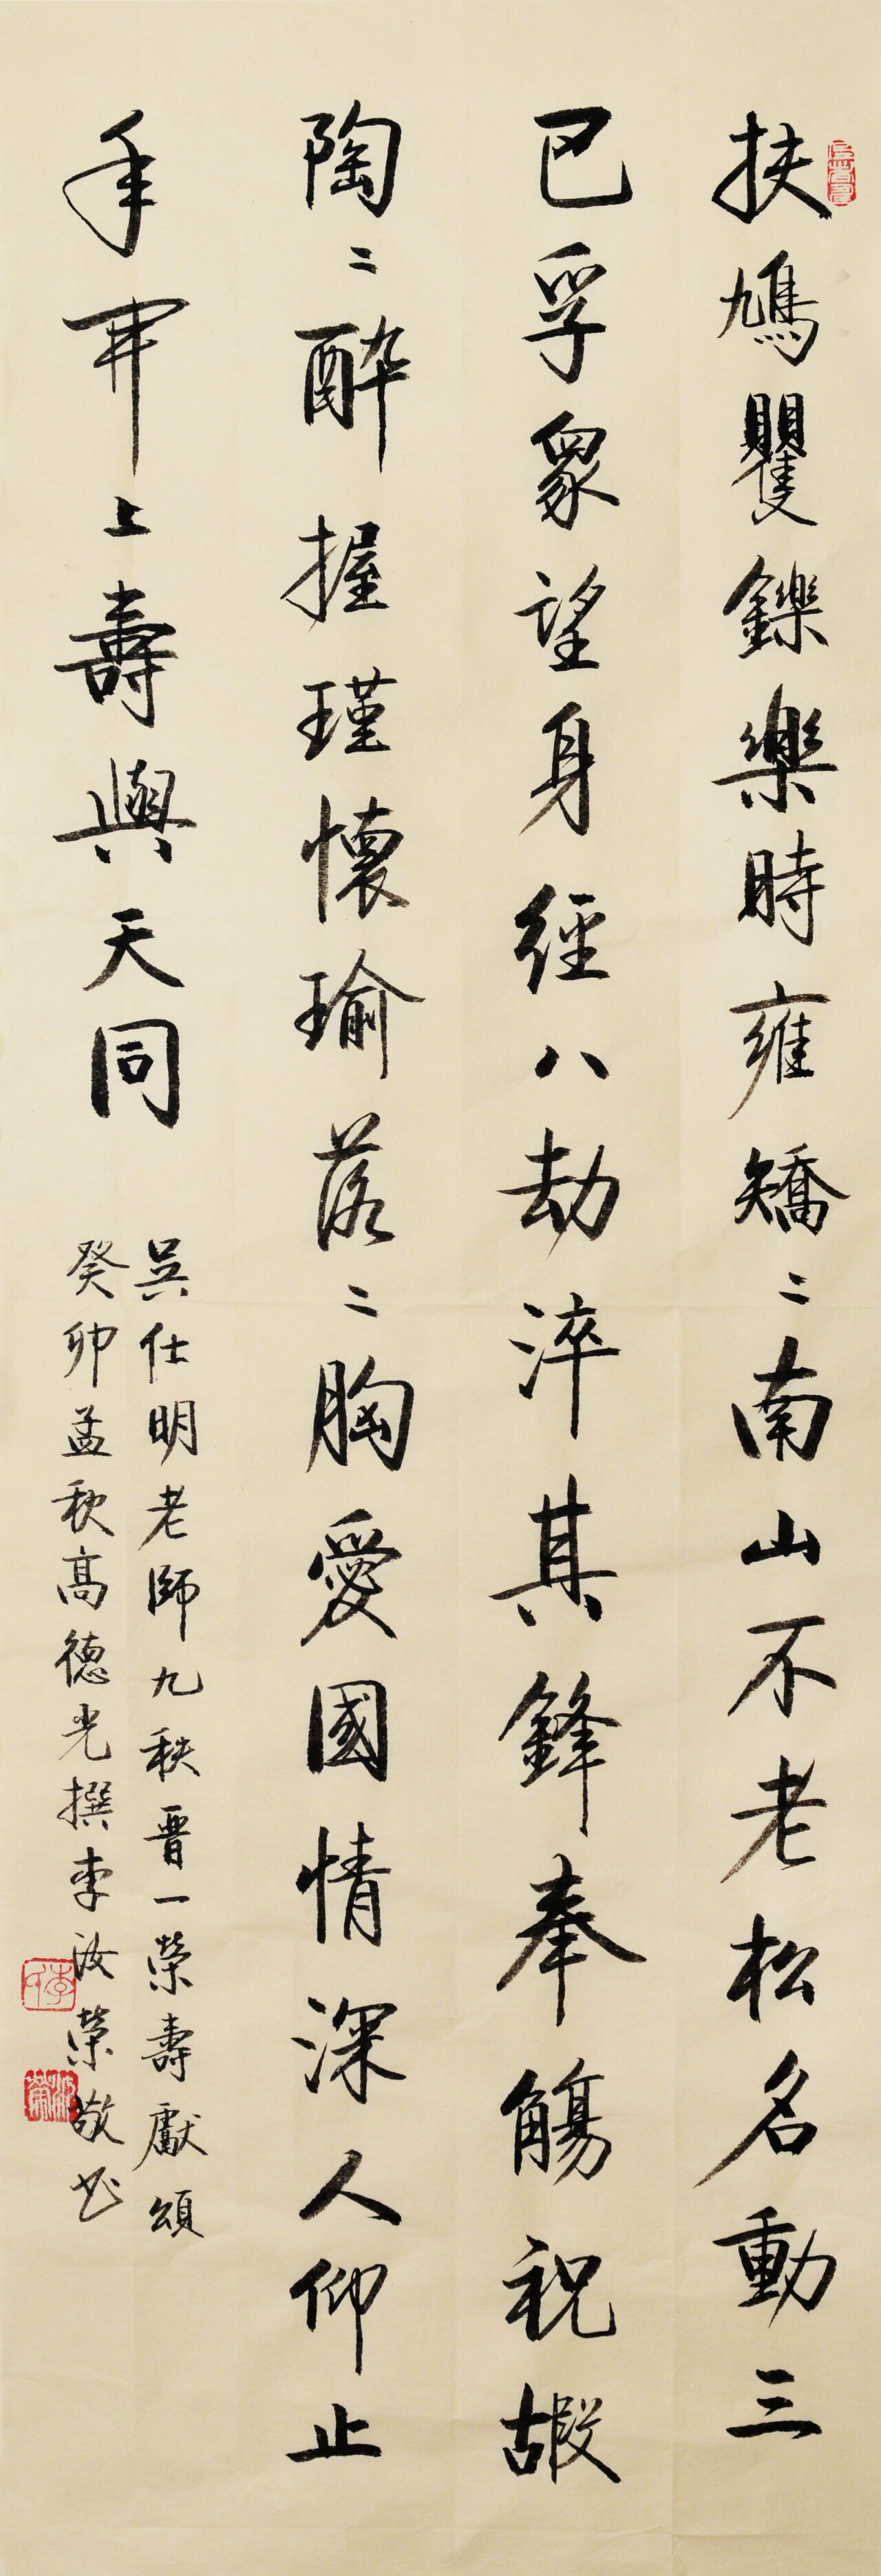 扶鳩矍鑠樂時雍矯〻南山不老松名動三
巴孚衆望身經八劫淬其鋒奉觴祝嘏
陶〻醉握瑾懷瑜落〻胸愛國情深人仰止
年開上壽與天同
吳仕明老師九秩晋一榮壽獻頌
癸卯孟秋高德光撰李汝榮敬书